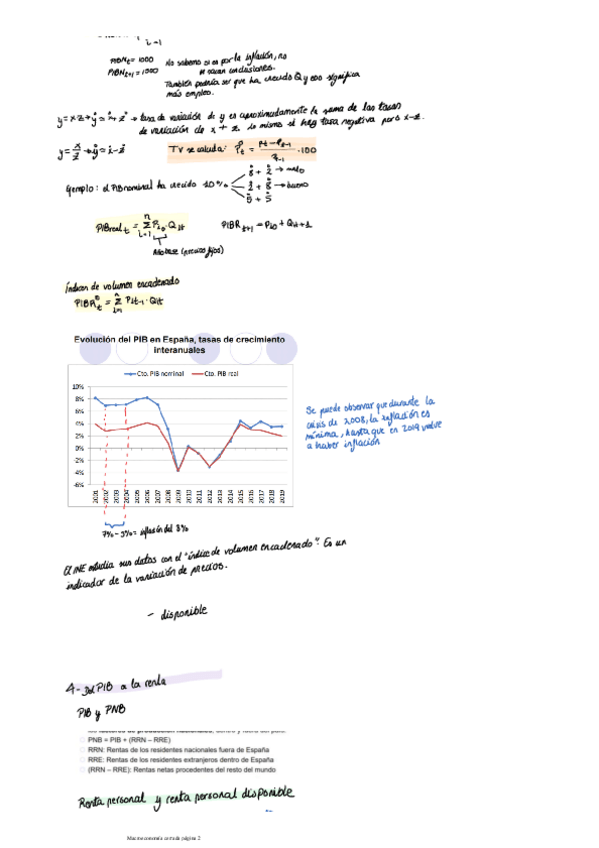 i=1
PIBNt = 1000
PIBNt+1 = 1500
No sabemos si es por la inflación, no
se sacan conclusiones.
También podría ser que ha crecido Q y eso significa
más empleo.
y = x·z → ẏ = ẋ + ż → tasa de variación de y es aproximadamente la suma de las tasas
de variación de x + z. Lo mismo si hay tasa negativa pero x - z.
y = x/z → ẏ = ẋ - ż
TV se calcula:
· 100
Ejemplo: el PIB nominal ha crecido 10%
8 + 2 → malo
2 + 8 → bueno
5 + 5
PIBreal t = Σ Pi0 · Qit
i=1
n
PIBR t+1 = Pi0 + Qit+1
Año base (precios fijos)
Índices de volumen encadenado
PIBR t = Σ Pit-1 · Qit
Evolución del PIB en España, tasas de crecimiento
interanuales
Cto. PIB nominal
Cto. PIB real
10%
8%
6%
4%
2%
0%
-2%
-4%
-6%
2001 2002 2003 2004 2005 2006 2007 2008 2009 2010 2011 2012 2013 2014 2015 2016 2017 2018 2019
Se puede observar que durante la
crisis de 2008, la inflación es
mínima, hasta que en 2019 vuelve
a haber inflación
7% - 3% = inflación del 3%
El INE estudia sus datos con el "índice de volumen encadenado". Es un
indicador de la variación de precios.
- disponible
4- Del PIB a la renta
PIB y PNB
los factores de producción nacionales, dentro y fuera del país.
PNB = PIB + (RRN – RRE)
RRN: Rentas de los residentes nacionales fuera de España
RRE: Rentas de los residentes extranjeros dentro de España
(RRN – RRE): Rentas netas procedentes del resto del mundo
Renta personal y renta personal disponible
página 2